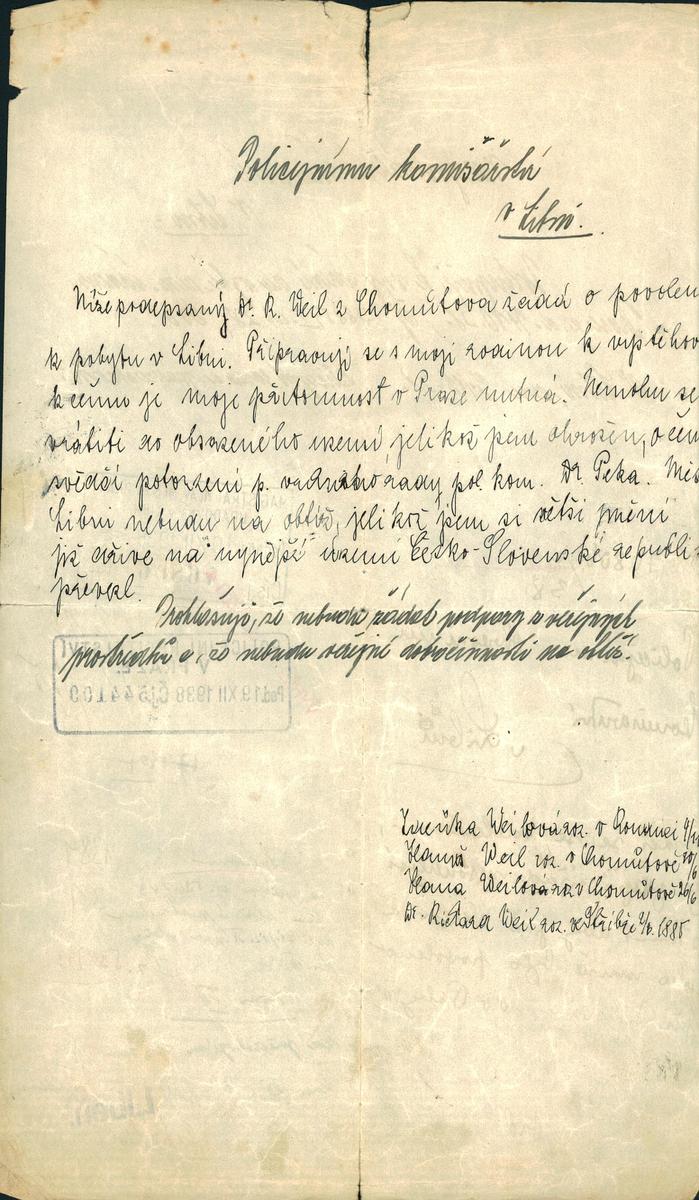 Policejnímu komisařství
v Libni.
Níže podepsaný Dr. R. Weil z Chomůtova žádá o povolen
k pobytu v Libni. Připravuji se s mojí rodinou k vystěhov
k čemu je moje přítomnost v Praze nutná. Nemohu se
vrátiti do obsazeného území, jelikož jsem ohrožen, o čem
svědčí potvrzení p. vrchního rady pol. kom. Dr. Peka. Měs
Libni nebudu na obtíž, jelikož jsem si větší jmění
již dříve na nynější území Česko-Slovenské republi
převezl.
Prohlašuji, že nebudu žádat podpory z veřejných
prostředků a, že nebudu veřejné dobročinnosti na obtíž.
V PRAZE
Pod. 19 XII 1938 Čj 544100
Weilová roz. v
Hanuš Weil roz. v Chomůtově
Hana Weilová roz v Chomůtově 26/6
Dr. Richard Weil roz. ve Stříbře 1885